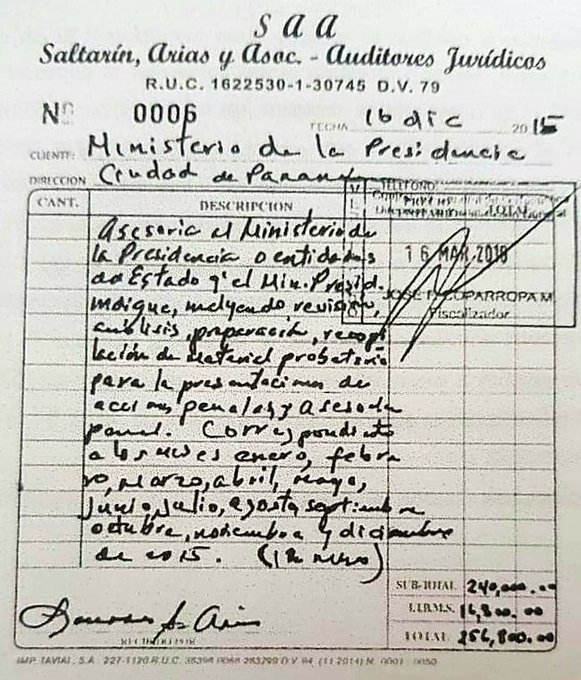 S A A
Saltarín, Arias y Asoc. - Auditores Jurídicos
R.U.C. 1622530-1-30745 D.V. 79
Nº 0006
FECHA 16 dic 2015
CLIENTE: Ministerio de la Presidencia
DIRECCION Ciudad de Panamá
TELEFONO:
CANT. DESCRIPCION TOTAL
16 MAR 2016
JOSE F. COPARROPA M.
Fiscalizador
Asesoria al Ministerio de
la Presidencia o entidades
de Estado q' el Min. Presid.
indique, incluyendo revisión,
análisis, preparación, recopi
lación de material probatorio
para la presentaciones de
acciones penales y asesoria
penal. Correspondiente
a los meses enero, febre
ro, marzo, abril, mayo,
junio, julio, agosto, septiembre
octubre, noviembre y diciembre
de 2015. (12 meses)
SUB-TOTAL 240,000.00
I.T.B.M.S. 16,800.00
TOTAL 256,800.00
RECIBIDO POR
IMP. TAVIAL, S.A. 227-1120 R.U.C.